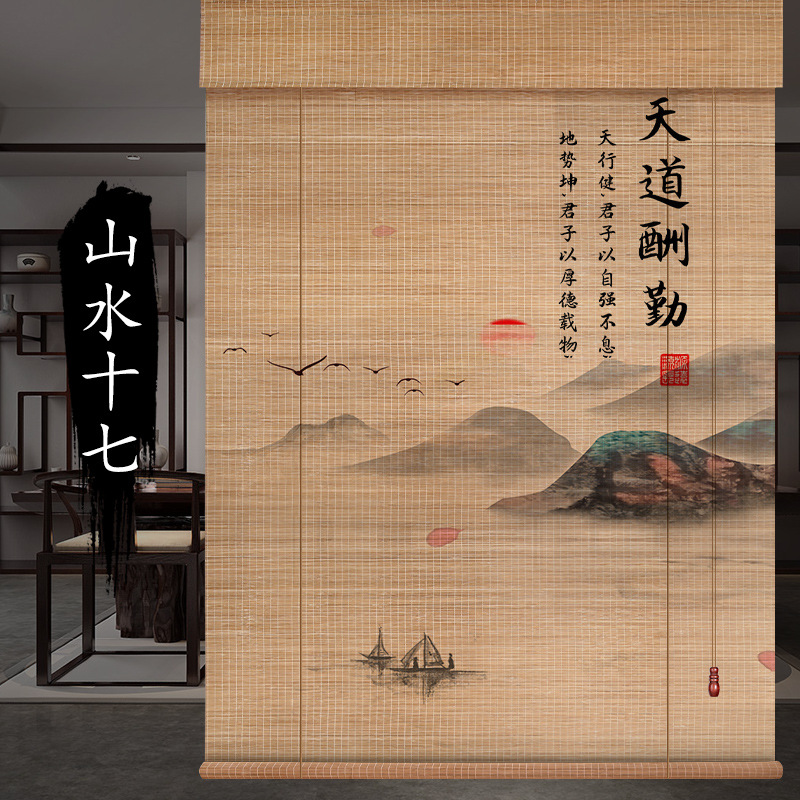 天道酬勤
天行健,君子以自强不息;
地势坤,君子以厚德载物;
山水十七